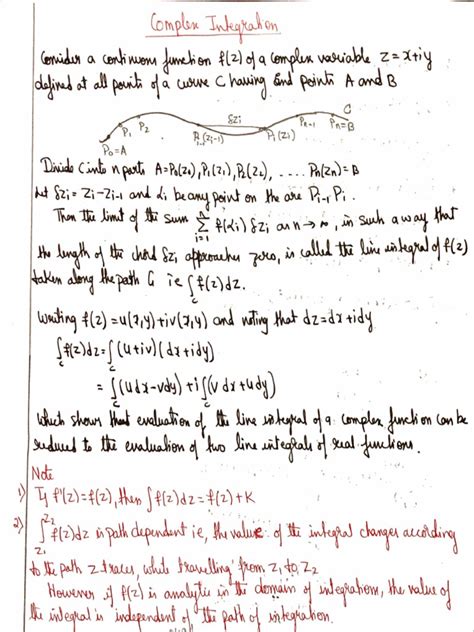 Complex Integration
Consider a continuous function f(z) of a complex variable z=x+iy
defined at all points of a curve C having end points A and B
P₀=A P₁ P₂ Pᵢ₋₁(zᵢ₋₁) δzᵢ Pᵢ(zᵢ) Pₙ₋₁ Pₙ=B C
Divide C into n parts A=P₀(z₀), P₁(z₁), P₂(z₂), .... Pₙ(zₙ)=B
Let δzᵢ = zᵢ-zᵢ₋₁ and αᵢ be any point on the arc Pᵢ₋₁Pᵢ.
Then the limit of the sum ∑ᵢ₌₁ⁿ f(αᵢ) δzᵢ as n→∞, in such a way that
the length of the chord δzᵢ approaches zero, is called the line integral of f(z)
taken along the path C, ie ∫_C f(z)dz.
Writing f(z)=u(x,y)+iv(x,y) and noting that dz=dx+idy
∫_C f(z)dz=∫_C (u+iv)(dx+idy)
= ∫_C (udx-vdy)+i∫_C (vdx+udy)
which shows that evaluation of the line integral of a complex function can be
reduced to the evaluation of two line integrals of real functions.
Note
1) If f'(z)=f(z), then ∫f(z)dz=f(z)+K
2) ∫_{z₁}^{z₂} f(z)dz is path dependent ie, the value of the integral changes according
to the path z traces, while travelling from z₁ to z₂
However if f(z) is analytic in the domain of integration, the value of
the integral is independent of the path of integration.